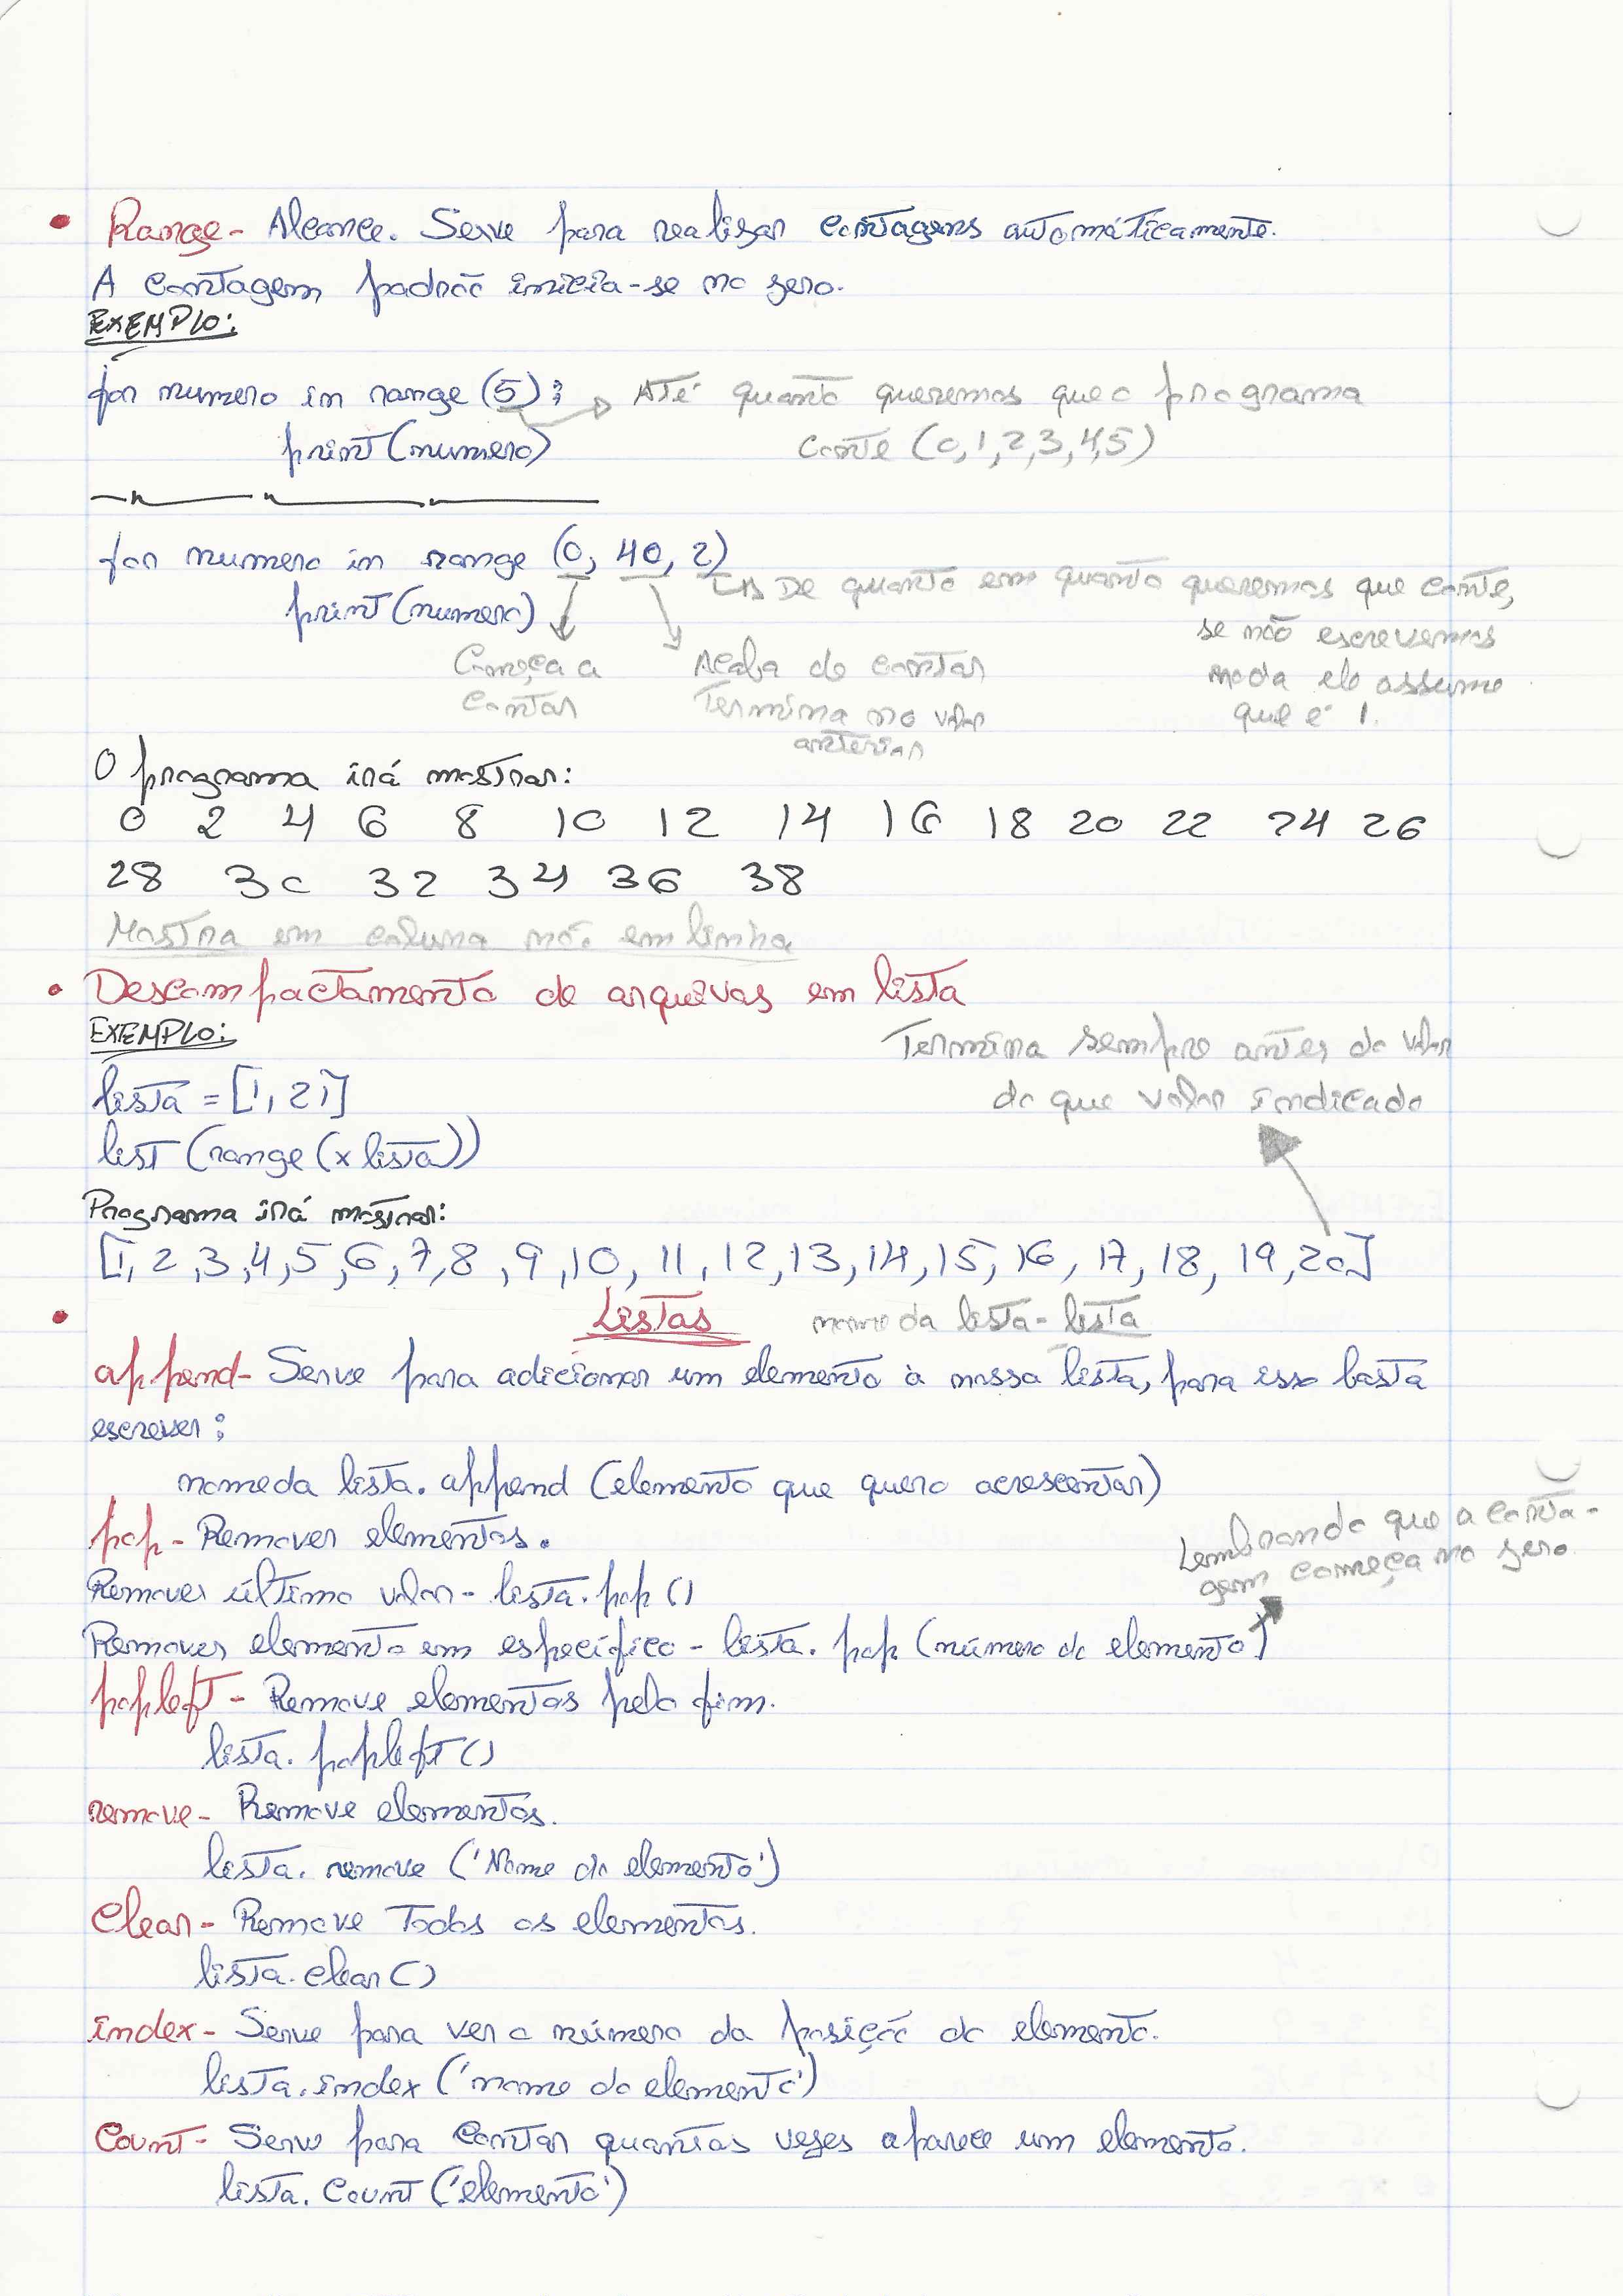 • Range - Alcance. Serve para realizar contagens automáticamente.
A contagem padrão inicia-se no zero.
EXEMPLO:
for numero in range (5): → Até quanto queremos que o programa
print (numero) conte (0,1,2,3,4,5)
for numero in range (0, 40, 2)
↳ De quanto em quanto queremos que conte,
print (numero)
se não escrevermos
Começa a Acaba de contar
nada ele assume
contar Termina no valor
que é 1.
anterior
O programa irá mostrar:
0 2 4 6 8 10 12 14 16 18 20 22 24 26
28 30 32 34 36 38
Mostra em coluna não em linha
• Descompactamento de arquivos em lista
EXEMPLO:
Termina sempre antes do valor
do que valor indicado
lista = [1, 21]
list (range (x lista))
Programa irá mostrar:
[1, 2, 3, 4, 5, 6, 7, 8, 9, 10, 11, 12, 13, 14, 15, 16, 17, 18, 19, 20]
• Listas nome da lista - lista
append - Serve para adicionar um elemento à nossa lista, para isso basta
escrever:
nome da lista. append (elemento que quero acrescentar)
pop - Remover elementos.
Lembrando que a conta-
gem começa no zero.
Remover último valor - lista. pop ()
Remover elemento em específico - lista. pop (número do elemento)
popleft - Remove elementos pelo fim.
lista. popleft ()
remove - Remove elementos.
lista. remove ('Nome do elemento')
Clear - Remove Todos os elementos.
lista. clear ()
index - Serve para ver o número da posição do elemento.
lista. index ('nome do elemento')
Count - Serve para contar quantas vezes aparece um elemento.
lista. Count ('elemento')